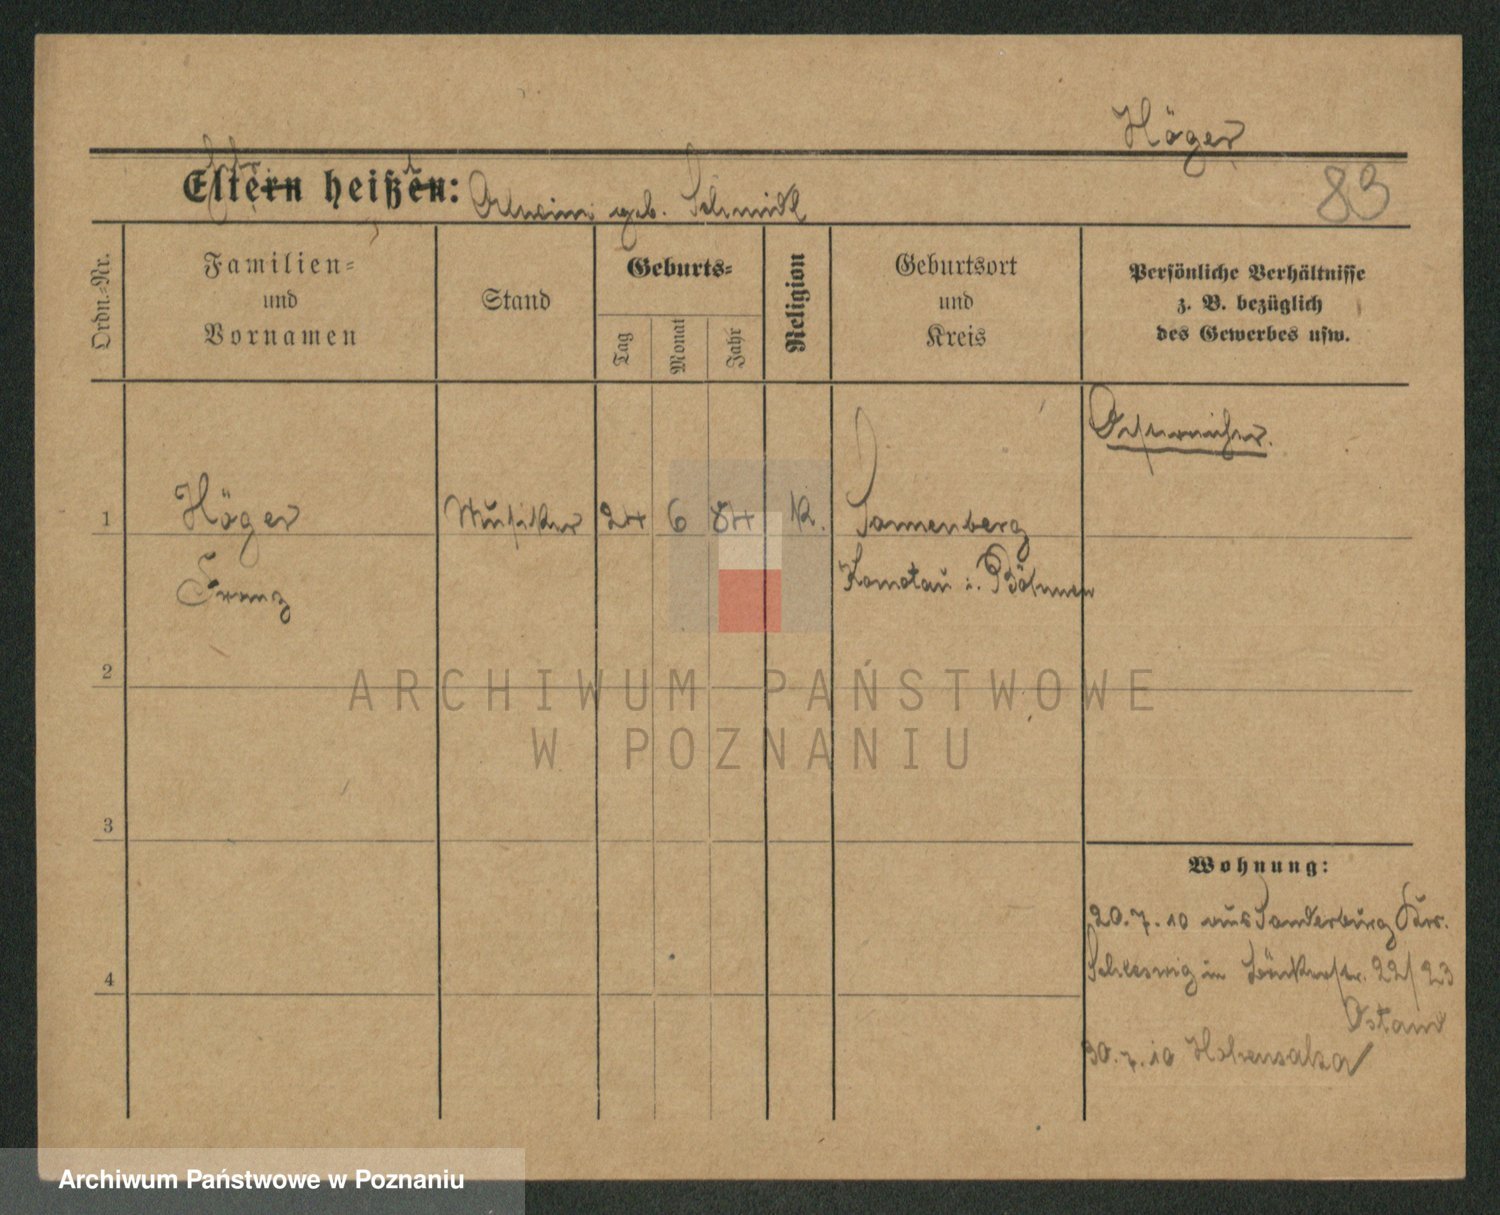 Höger
83
Eltern heißen: geb. Schmidt
Ordn.-Nr.
Familien-
und
Vornamen
Stand
Geburts-
Tag
Monat
Jahr
Religion
Geburtsort
und
Kreis
Persönliche Verhältnisse
z. B. bezüglich
des Gewerbes usw.
Österreicher.
1
Höger
Franz
Musiker
24
6
84
K.
Sonnenberg
Komotau i. Böhmen
2
ARCHIWUM PAŃSTWOWE
W POZNANIU
3
4
Wohnung:
20.7.10 aus Sonderburg
Schleswig in 22/23
30.7.10 Hohensalza
Archiwum Państwowe w Poznaniu